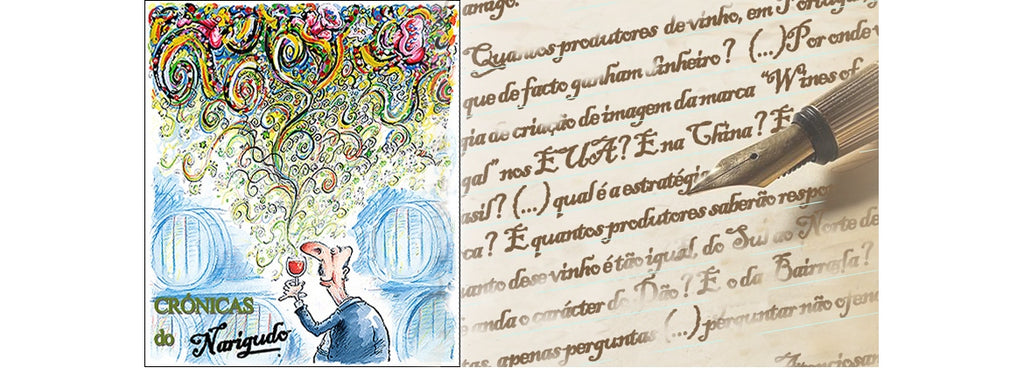 CRÓNICAS
do Narigudo
amago.
Quantos produtores de vinho, em Portugal,
que de facto ganham dinheiro? (...) Por onde
gia de criação de imagem da marca "Wines of
gal" nos EUA? E na China? E
asil? (...) qual é a estratégia
ca? E quantos produtores saberão respo
uanto desse vinho é tão igual, do Sul ao Norte de
e anda o carácter do Dão? E o da Bairrada?
tas, apenas perguntas (...) perguntar não ofend